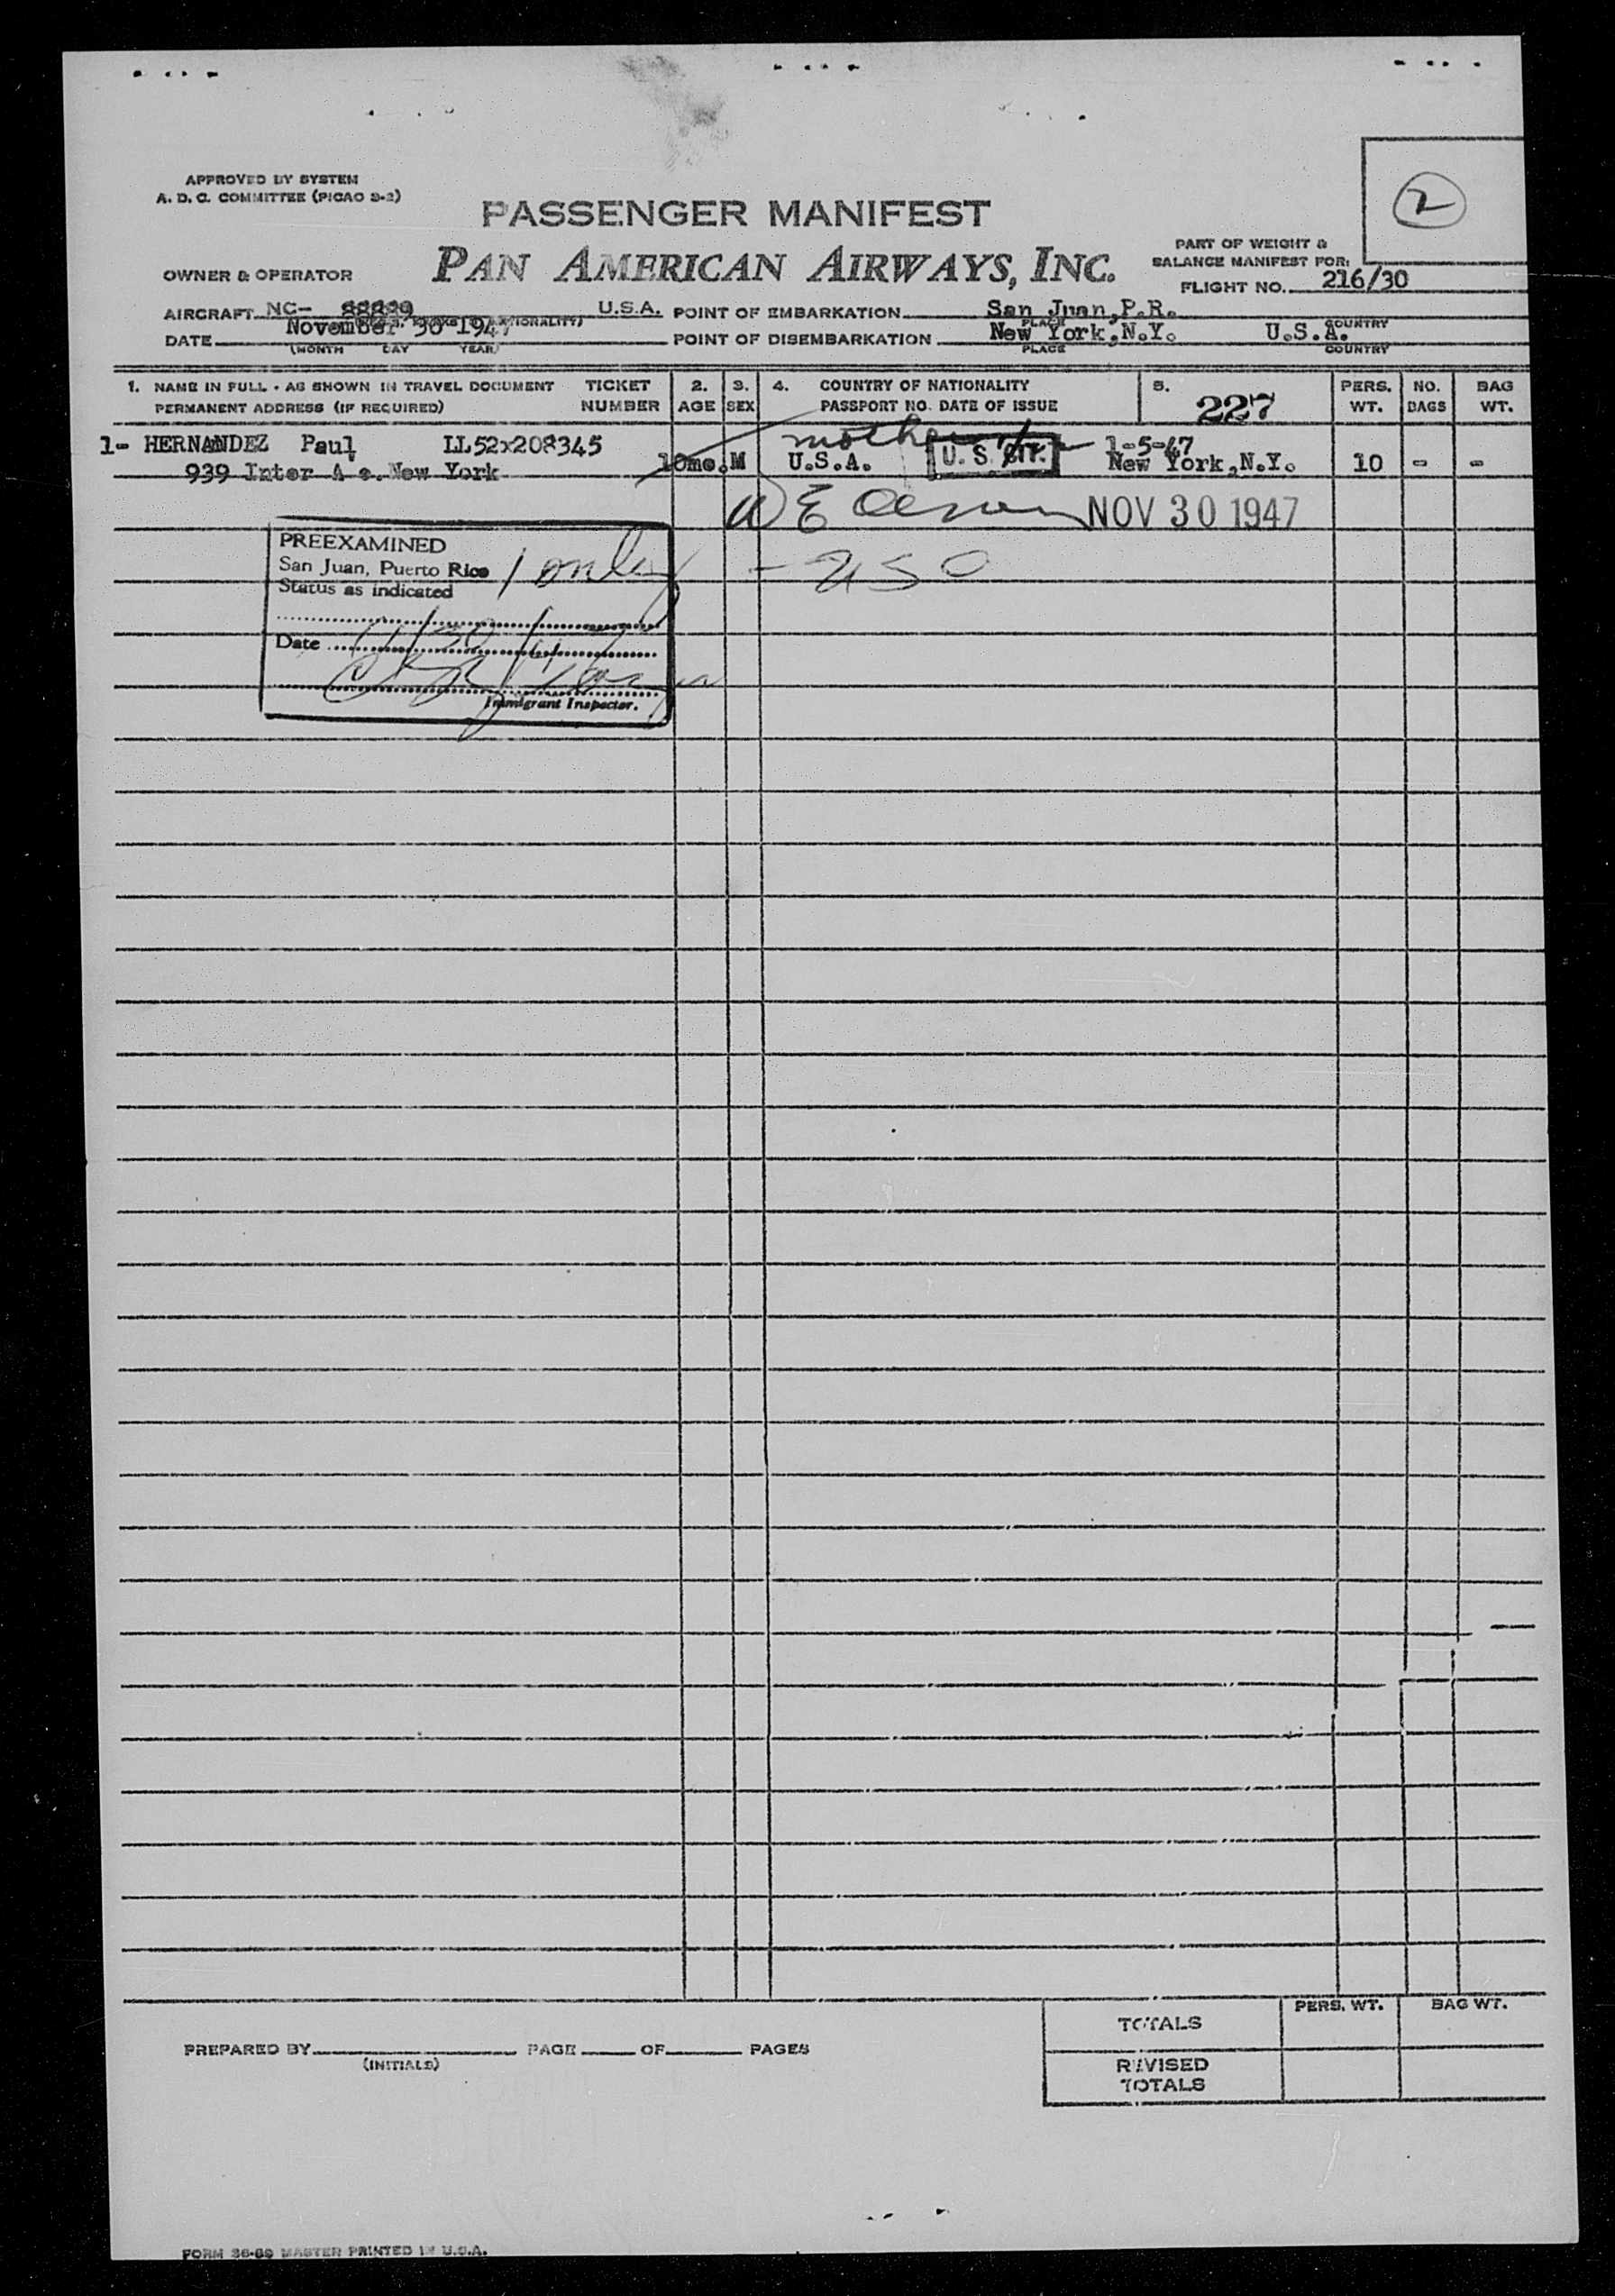 APPROVED BY SYSTEM
A. D. C. COMMITTEE (PICAO S-2)
2
PASSENGER MANIFEST
PAN AMERICAN AIRWAYS, INC.
PART OF WEIGHT &
BALANCE MANIFEST FOR:
OWNER & OPERATOR
FLIGHT NO. 216/30
AIRCRAFT NC- U.S.A. POINT OF EMBARKATION San Juan,P.R.
PLACE COUNTRY
DATE November 30 1947 POINT OF DISEMBARKATION New York,N.Y. U.S.A.
(MONTH DAY YEAR) PLACE COUNTRY
1. NAME IN FULL - AS SHOWN IN TRAVEL DOCUMENT TICKET 2. 3. 4. COUNTRY OF NATIONALITY 5. PERS. NO. BAG
PERMANENT ADDRESS (IF REQUIRED) NUMBER AGE SEX PASSPORT NO. DATE OF ISSUE 227 WT. BAGS WT.
1- HERNANDEZ Paul LL52x208345 1-5-47
939 New York 10mo. M U.S.A. U. S. CIT. New York,N.Y. 10 - -
NOV 30 1947
PREEXAMINED
San Juan, Puerto Rico 1 only - USC
Status as indicated
Date 11/30/47
Immigrant Inspector.
TOTALS PERS. WT. BAG WT.
PREPARED BY PAGE OF PAGES
(INITIALS)
REVISED
TOTALS
FORM MASTER PRINTED IN U.S.A.